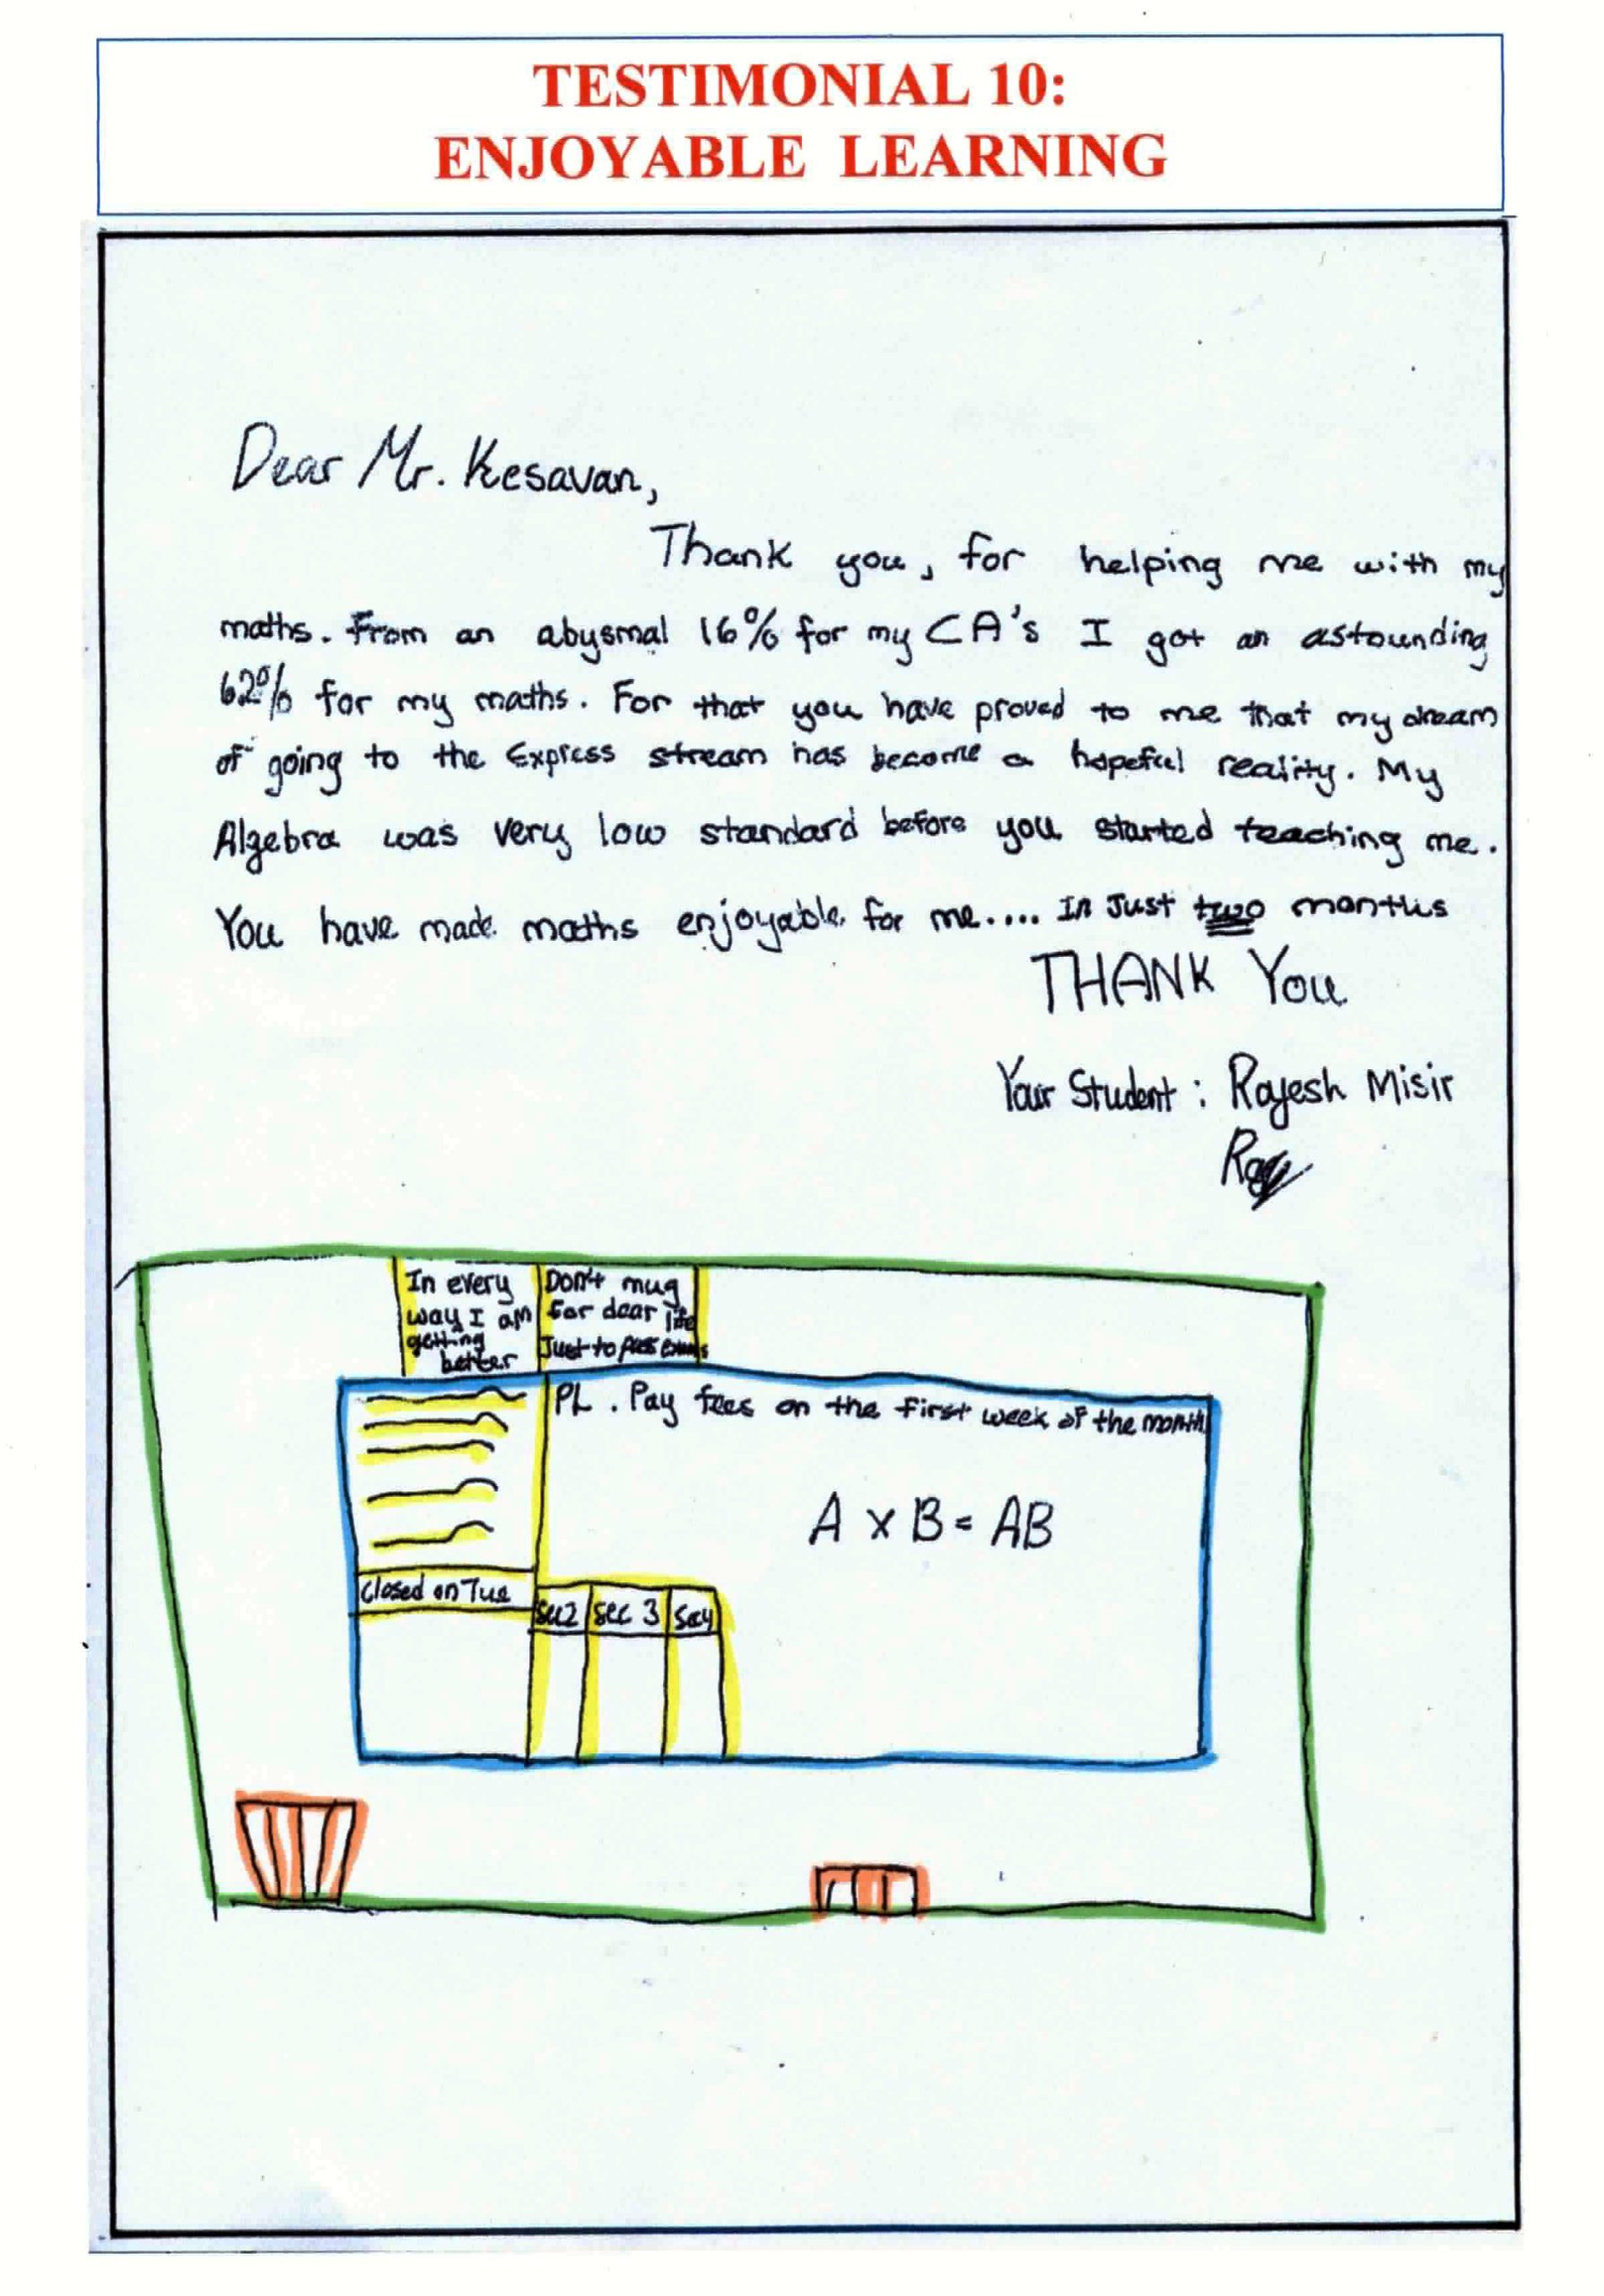 TESTIMONIAL 10:
ENJOYABLE LEARNING
Dear Mr. Kesavan,
Thank you, for helping me with my
maths. From an abysmal 16% for my CA's I got an astounding
62% for my maths. For that you have proved to me that my dream
of going to the Express stream has become a hopeful reality. My
Algebra was very low standard before you started teaching me.
You have made maths enjoyable for me.... In Just two months
THANK You
Your Student : Rajesh Misir
In every
way I am
getting
better
Don't mug
for dear life
Just to pass exams
PL . Pay fees on the first week of the month
A x B = AB
Closed on Tue
sec2 sec 3 sec4